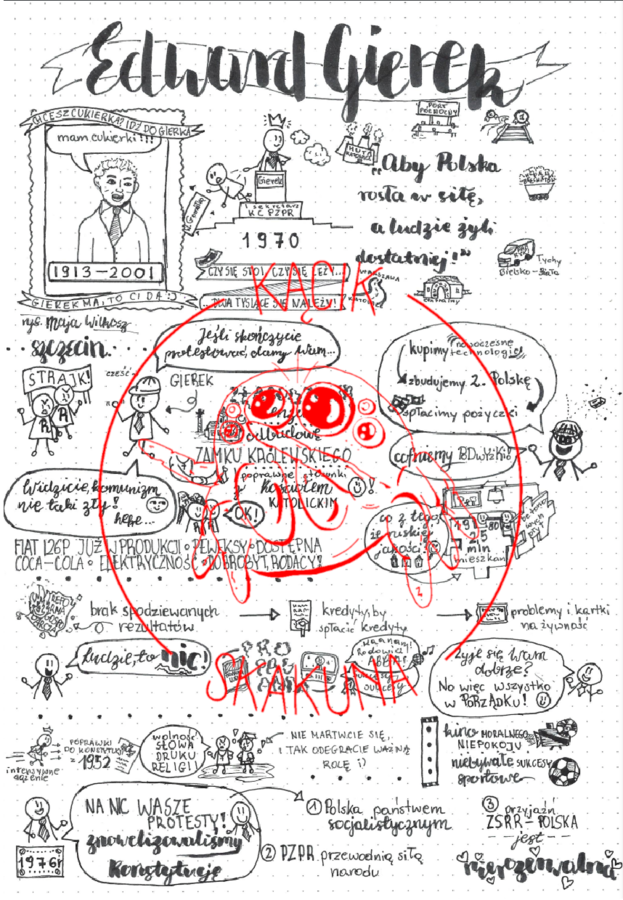 Edward Gierek
CHCESZ CUKIERKA? IDŹ DO GIERKA
mam cukierki!!!
1913-2001
GIEREK MA, TO CI DA :)
rys. Maja Wilkosz
Gierek
I sekretarz
K.C. PZPR
1970
HUTA
KATOWICE
CZY SIĘ STOI, CZY SIĘ LEŻY...
...DWA TYSIĄCE SIĘ NALEŻY!
PORT
PÓŁNOCNY
„Aby Polska
rosła w siłę,
a ludzie żyli
dostatniej!"
Tychy
Bielsko-Biała
WARSZAWA
KATOWICE
KĄCIK
szczecin
STRAJK!
cześć
Jeśli skończycie
protestować, damy Wam...
GIEREK
odbudowę
ZAMKU KRÓLEWSKIEGO
poprawię stosunki
z kościołem
KATOLICKIM
OK!
Widzicie, komunizm
nie taki zły!
hehe...
kupimy nowoczesne
technologie!
zbudujemy 2. Polskę
spłacimy pożyczki
cofniemy podwyżki!
co z tego,
że ruskiej
jakości?
1975
mln
mieszkań
FIAT 126P JUŻ W PRODUKCJI • PEWEKSY • DOSTĘPNA
COCA-COLA • ELEKTRYCZNOŚĆ • DOBROBYT, RODACY!
brak spodziewanych
rezultatów
kredyty by
spłacić kredyty
problemy i kartki
na żywność
ludzie, to nic!
SKAKUNA
Żyje się Wam
dobrze?
No więc wszystko
w PORZĄDKU!
intensywne
myślenie
POPRAWKI
DO KONSTYTUCJI
z 1952
wolność
SŁOWA
DRUKU
RELIGII
NIE MARTWCIE SIĘ,
I TAK ODEGRACIE WAŻNĄ
ROLĘ ;)
kino MORALNEGO
NIEPOKOJU
niebywałe SUKCESY
sportowe
1976r
NA NIC WASZE
PROTESTY!
znowelizowaliśmy
Konstytucję
1 Polska państwem
socjalistycznym
2 PZPR przewodnią siłą
narodu
3 przyjaźń
ZSRR-POLSKA
jest
nierozerwalna